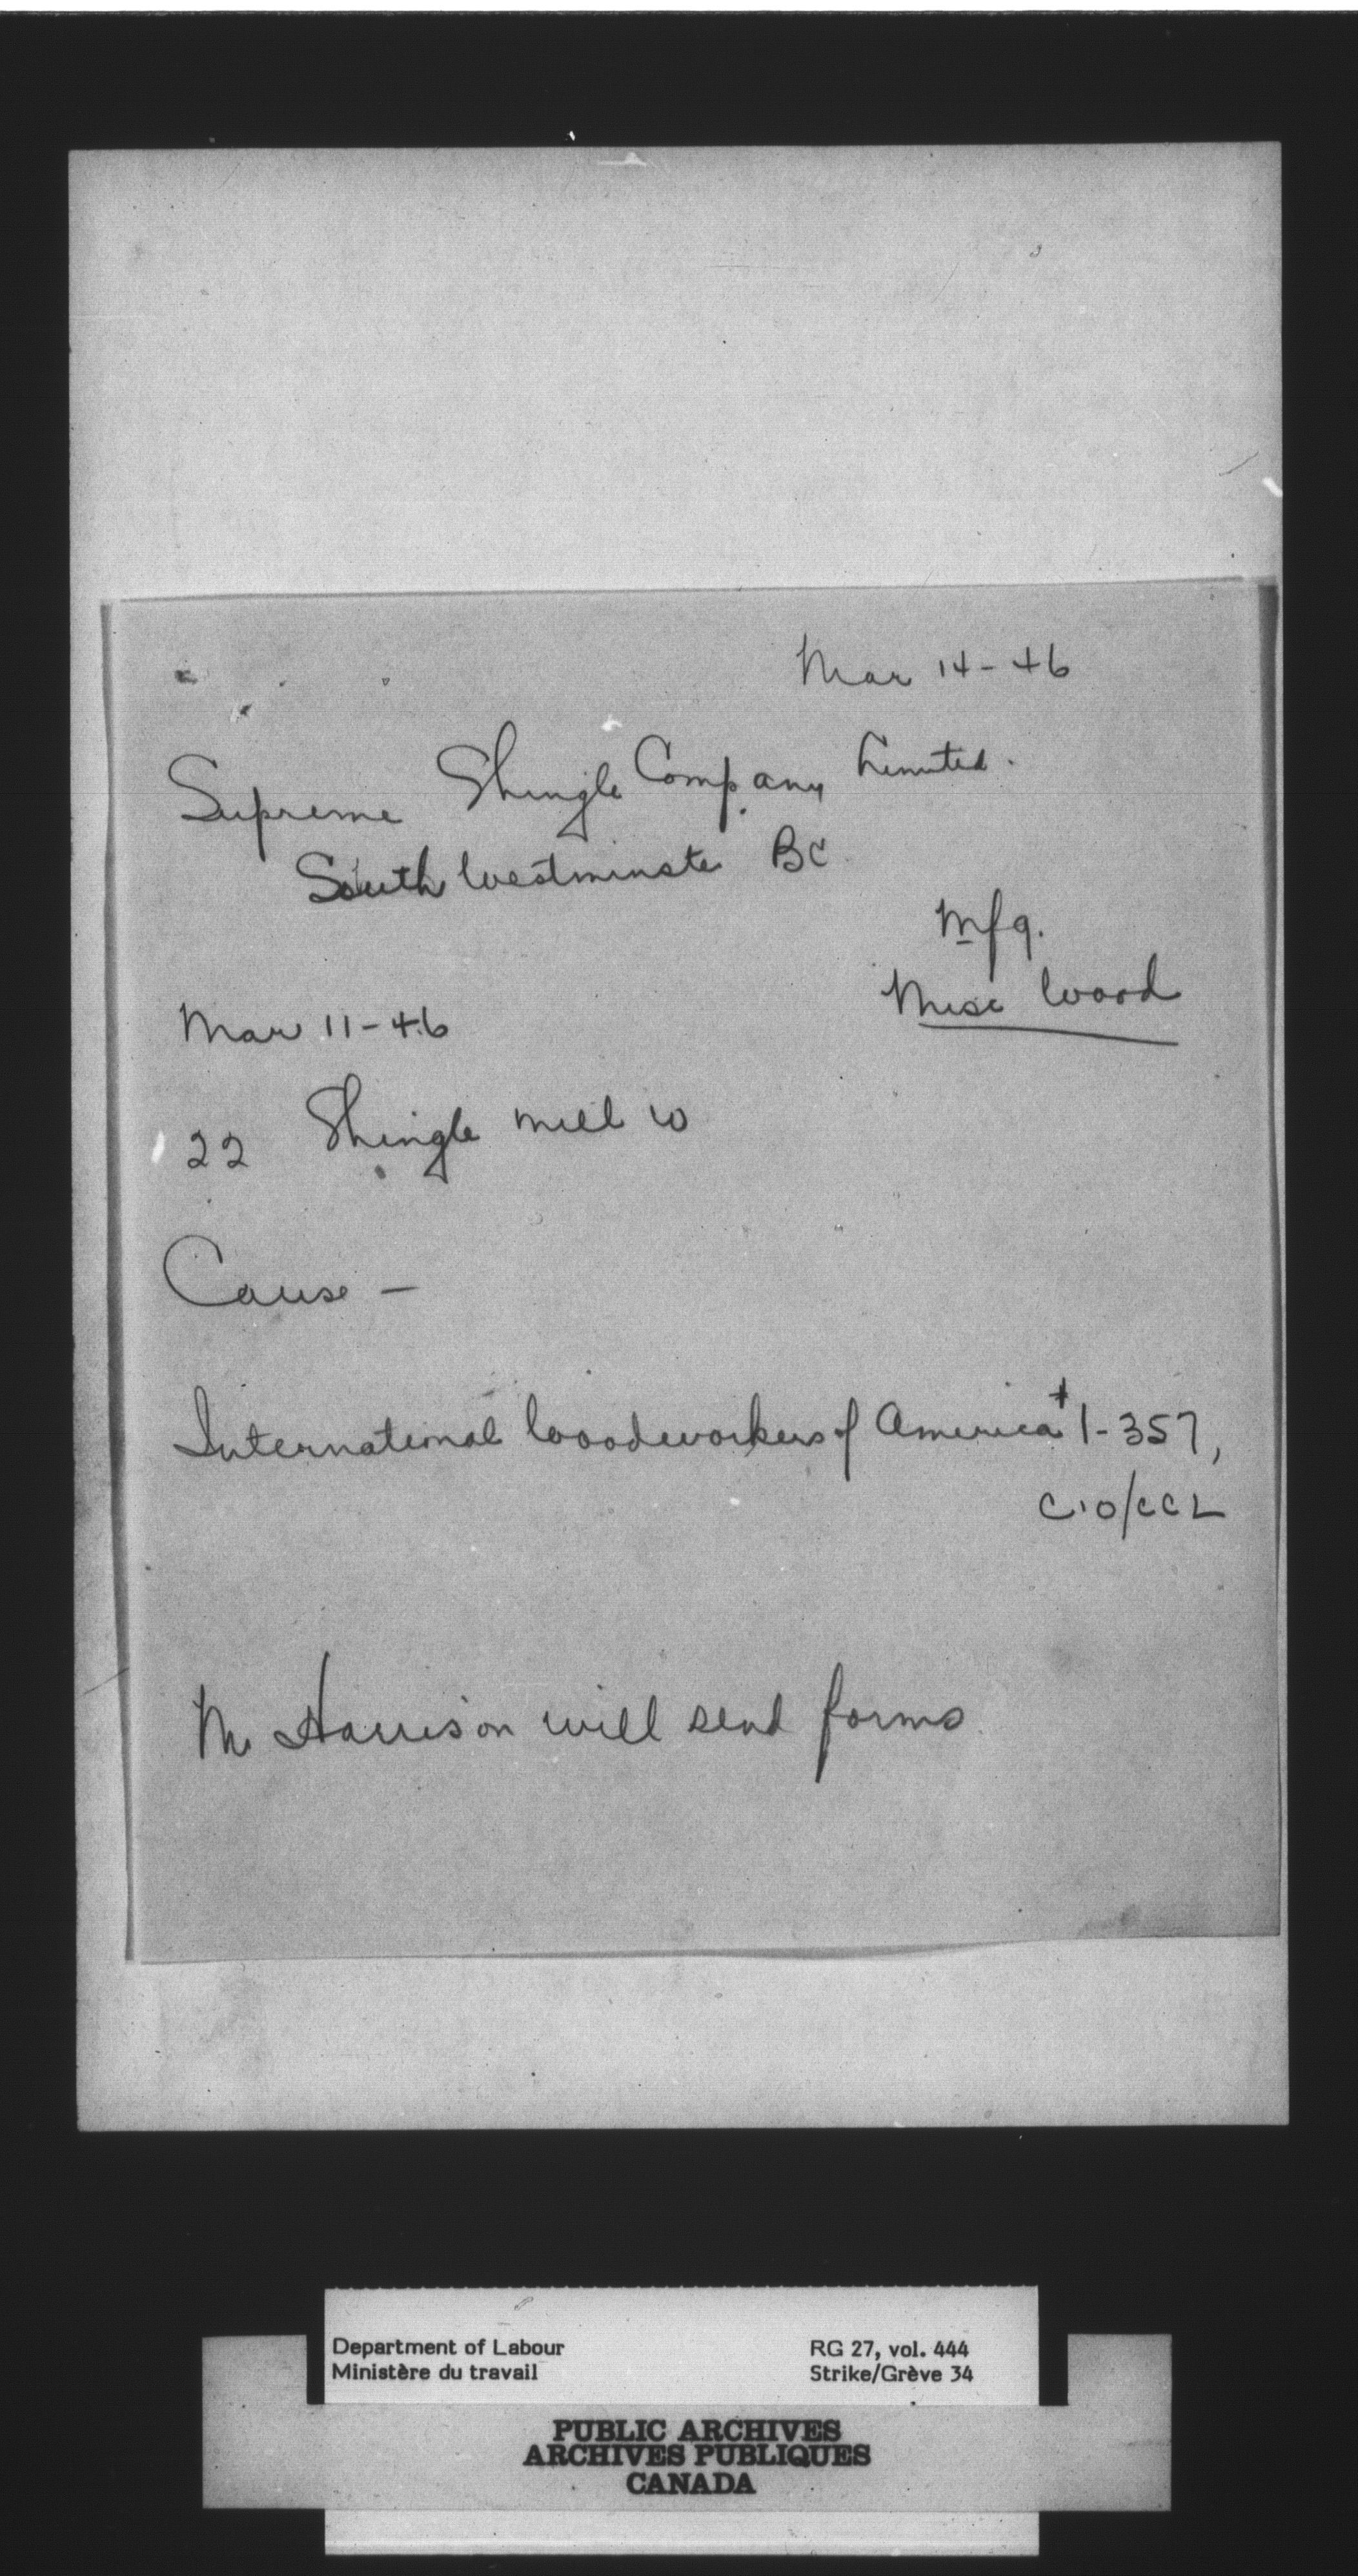 Mar 14-46
Supreme Shingle Company Limited.
South Westminster BC
Mfg.
Misc Wood
Mar 11-46
22 Shingle mill w
Cause -
International Woodworkers of America # 1-357,
CIO/CCL
Mr Harrison will send forms
Department of Labour
Ministère du travail
RG 27, vol. 444
Strike/Grève 34
PUBLIC ARCHIVES
ARCHIVES PUBLIQUES
CANADA